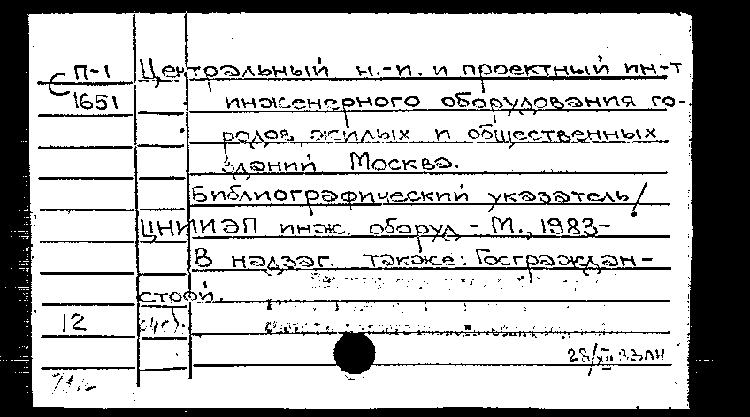 П-1 Центральный н.-и. и проектный ин-т
С 1651 инженерного оборудования го-
родов, жилых и общественных
зданий Москва.
Библиографический указатель/
ЦНИИЭП инж. оборуд - М., 1983-
В надзаг. также: Госграждан-
строй.
12
28/XII 83